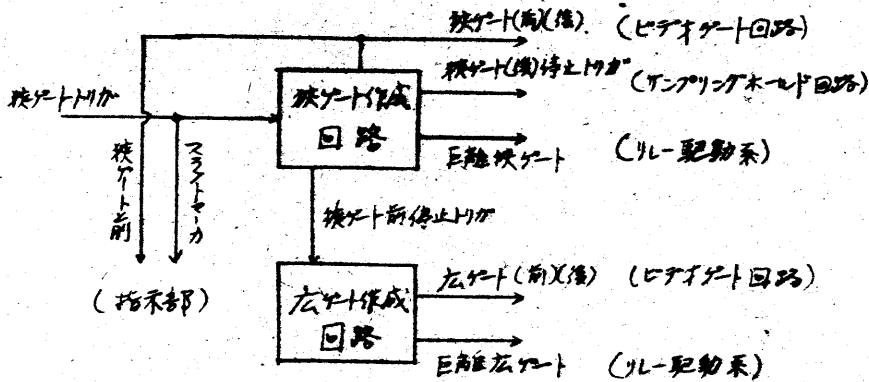 狭ゲート(前)(後) (ビデオゲート回路)
狭ゲート(後)停止トリガ (サンプリングホールド回路)
狭ゲートトリガ
狭ゲート作成
回路
距離狭ゲート (リレー駆動系)
狭ゲート前
スラントマーカ
狭ゲート前停止トリガ
(指示部)
広ゲート(前)(後) (ビデオゲート回路)
広ゲート作成
回路
距離広ゲート (リレー駆動系)